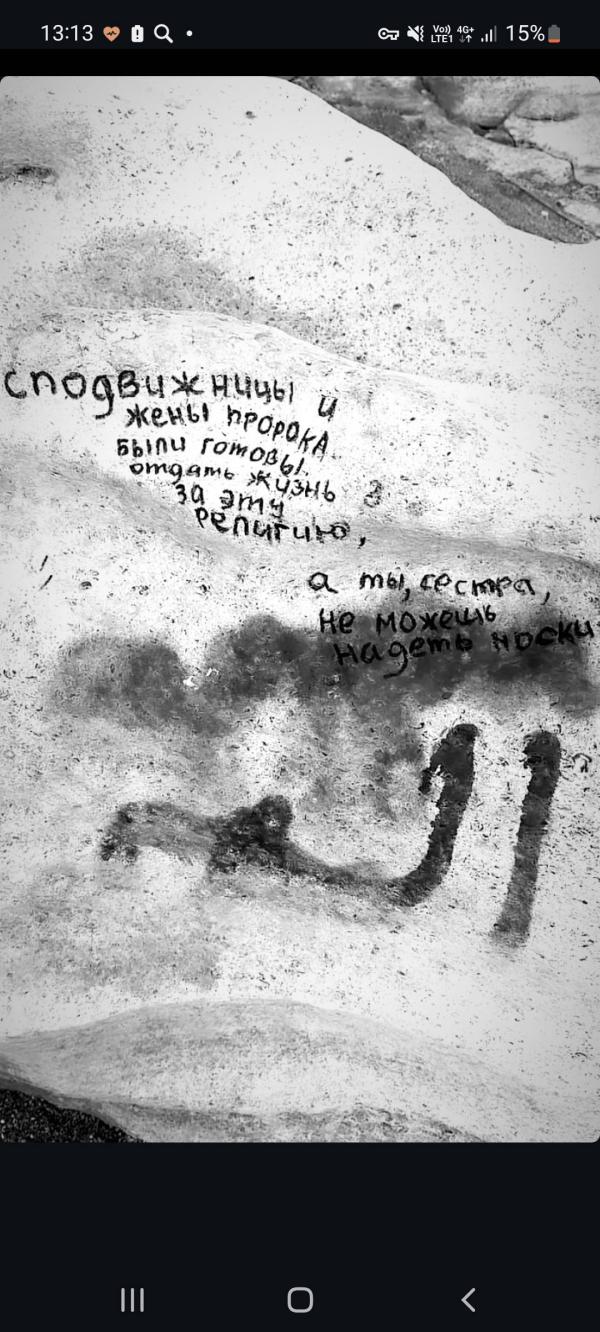 13:13
Vo)) LTE1 4G+ 15%
сподвижницы и
жены пророка
были готовы
отдать жизнь
за эту
религию,
а ты, сестра,
не можешь
надеть носки